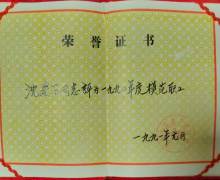 荣誉证书
沈 同志评为一九九〇年度模范职工
一九九一年元月